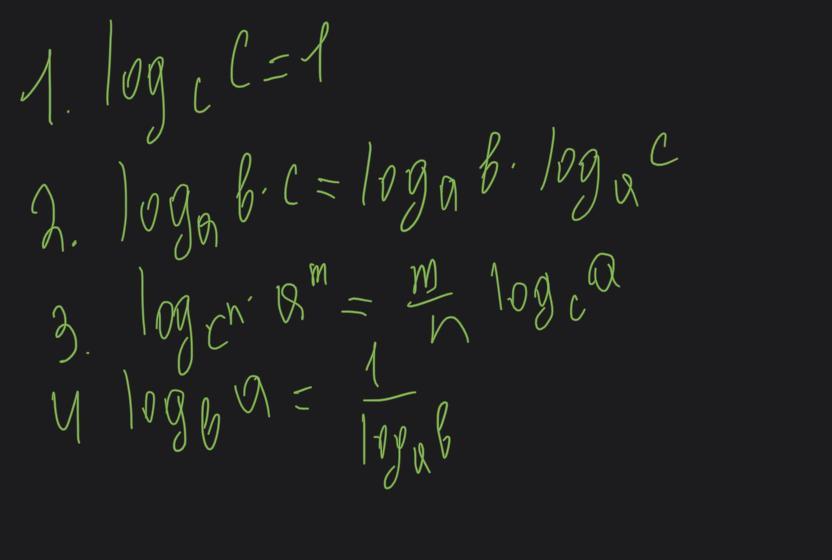 1. log_c C = 1
2. log_a b · c = log_a b · log_a c
3. log_{c^n} a^m = m/n log_c a
4 log_b a = 1/log_a b